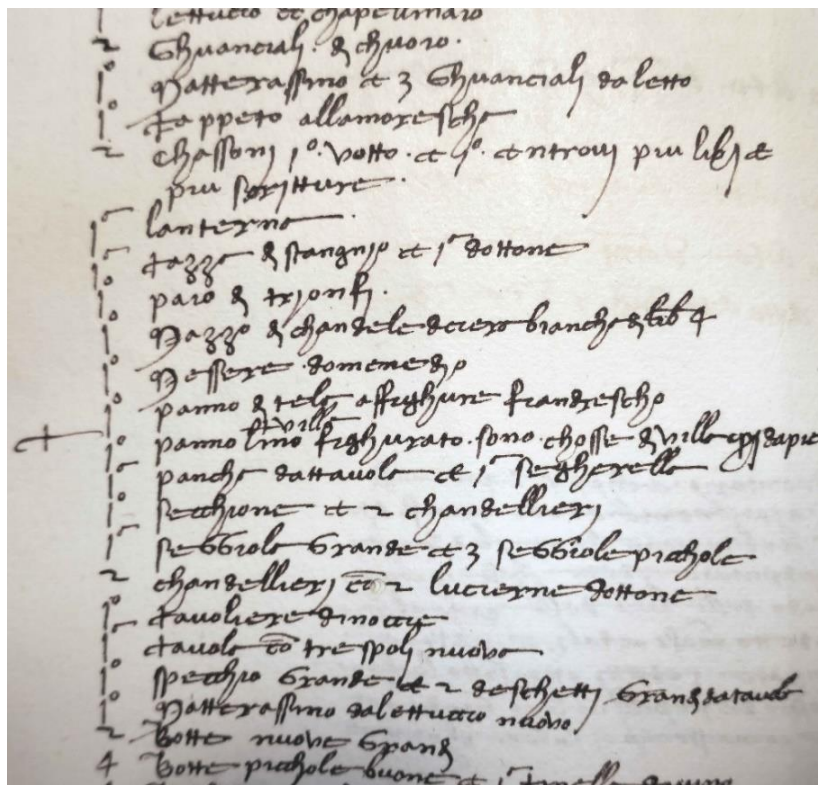 1 lettuccio et chapellinaro
2 Ghuanciali · di chuoro ·
1º Matterassino et 3 Ghuanciali da letto
1º tappeto allamorescha
2 chassoni 1º · votto · et 1º · entrovi piu libri e
piu scritture ·
1ª lanterna ·
1ª tazza di stangnio et 1ª dottone
1º paro di trionfi ·
1º Mazzo di chandele di cera biancha di libb 4
1º Messere domenedio
1º panno di tela affighure franzescho
1º panno lino fighurato · sono · chosse di villa da pie
1ª pancha dattavola et 1ª segherella
1º secchione et 2 chandellieri
1ª seggiola grande et 3 seggiole pichole
2 chandellieri cō 2 lucierne dottone
1º tavoliere dinocie
1ª tavola cō trespoli nuova
1º specchio grande et 2 deschetti grandi da tavola
1º Matterassino dalettuccio nuovo
2 Botte nuove grandi
4 Botte pichole buone et 1ª